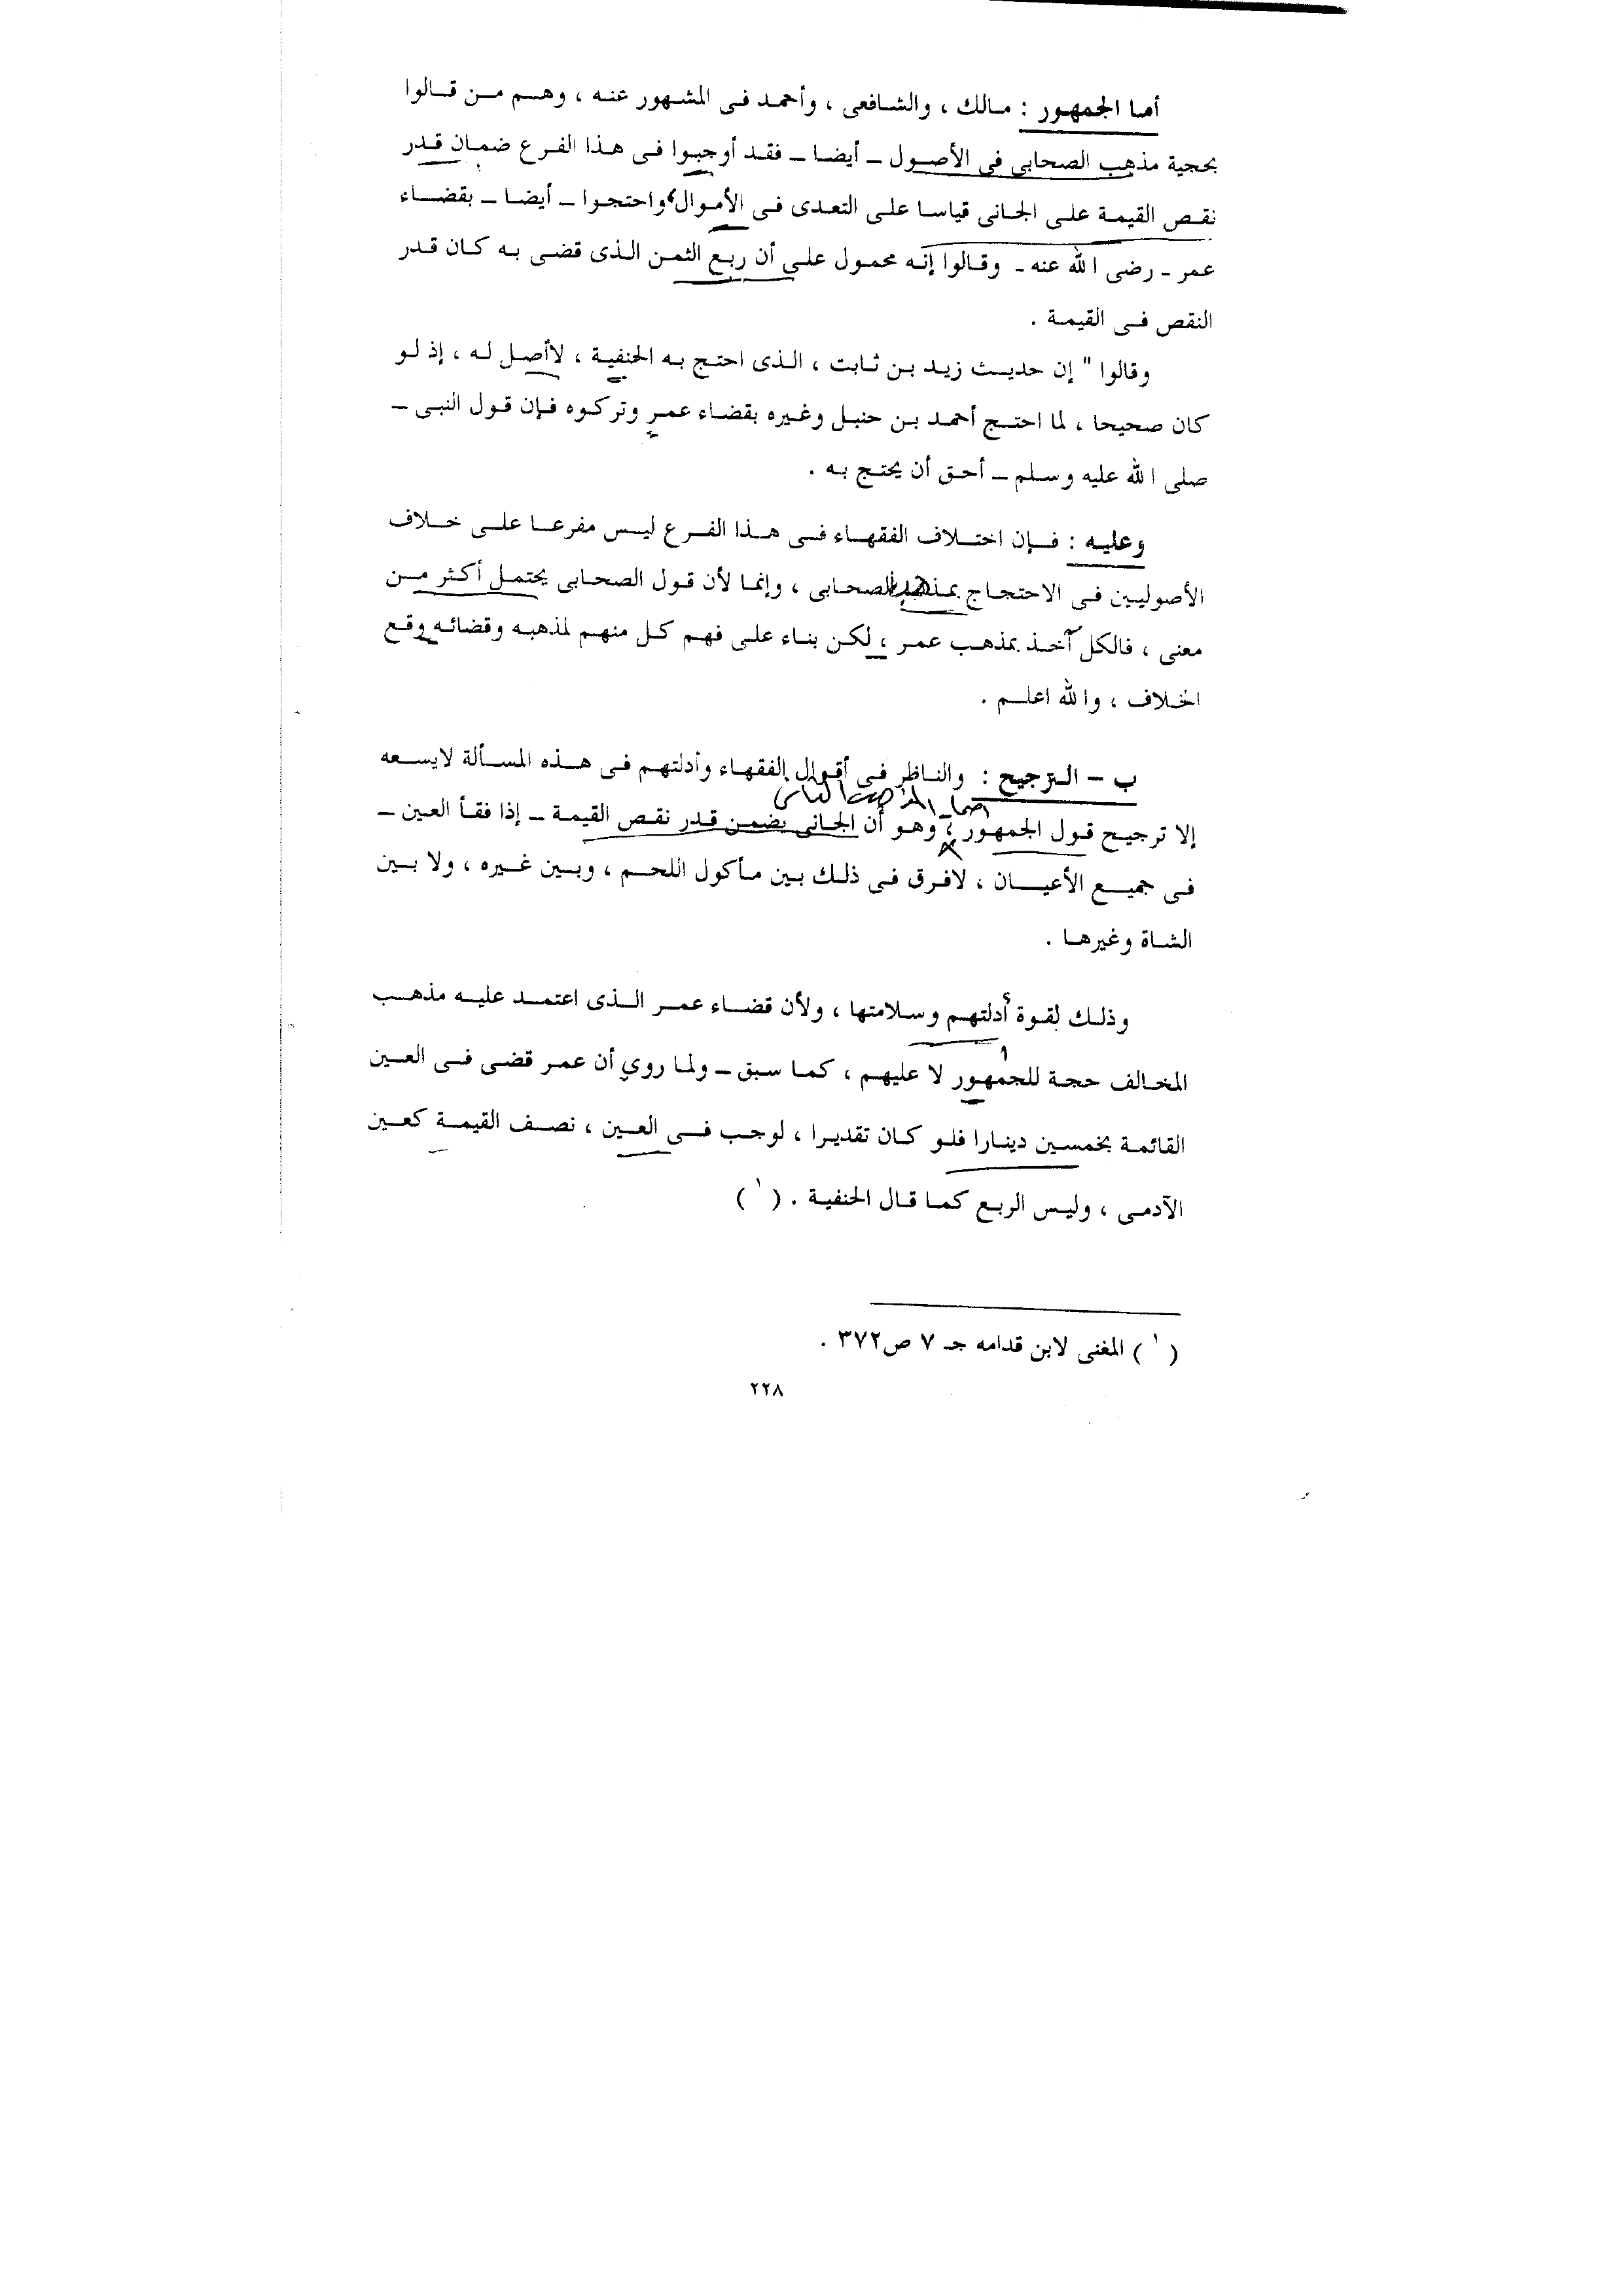 أما الجمهور : مالك ، والشافعى ، وأحمد فى المشهور عنه ، وهم من قالوا
بحجية مذهب الصحابى فى الأصول ــ أيضا ــ فقد أوجبوا فى هذا الفرع ضمان قدر
نقص القيمة على الجانى قياسا على التعدى فى الأموال، واحتجوا ــ أيضا ــ بقضاء
عمر ــ رضى الله عنه ــ وقالوا إنه محمول على أن ربع الثمن الذى قضى به كان قدر
النقص فى القيمة .
وقالوا " إن حديث زيد بن ثابت ، الذى احتج به الحنفية ، لاأصل له ، إذ لو
كان صحيحا ، لما احتج أحمد بن حنبل وغيره بقضاء عمر وتركوه فإن قول النبى ــ
صلى الله عليه وسلم ــ أحق أن يحتج به .
وعليه : فإن اختلاف الفقهاء فى هذا الفرع ليس مفرعا على خلاف
الأصوليين فى الاحتجاج بمذهب الصحابى ، وإنما لأن قول الصحابى يحتمل أكثر من
معنى ، فالكل آخذ بمذهب عمر ، لكن بناء على فهم كل منهم لمذهبه وقضائه وقع
الخلاف ، والله اعلم .
ب – الترجيح : والناظر فى أقوال الفقهاء وأدلتهم فى هذه المسألة لايسعه
إلا ترجيح قول الجمهور ، وهو أن الجانى يضمن قدر نقص القيمة ــ إذا فقأ العين ــ
فى جميع الأعيان ، لافرق فى ذلك بين مأكول اللحم ، وبين غيره ، ولا بين
الشاة وغيرها .
وذلك لقوة أدلتهم وسلامتها ، ولأن قضاء عمر الذى اعتمد عليه مذهب
المخالف حجة للجمهور لا عليهم ، كما سبق ــ ولما روي أن عمر قضى فى العين
القائمة بخمسين دينارا فلو كان تقديرا ، لوجب فى العين ، نصف القيمة كعين
الآدمى ، وليس الربع كما قال الحنفية . ( ١ )
( ١ ) المغنى لابن قدامه جـ ٧ ص٣٧٢ .
٢٢٨